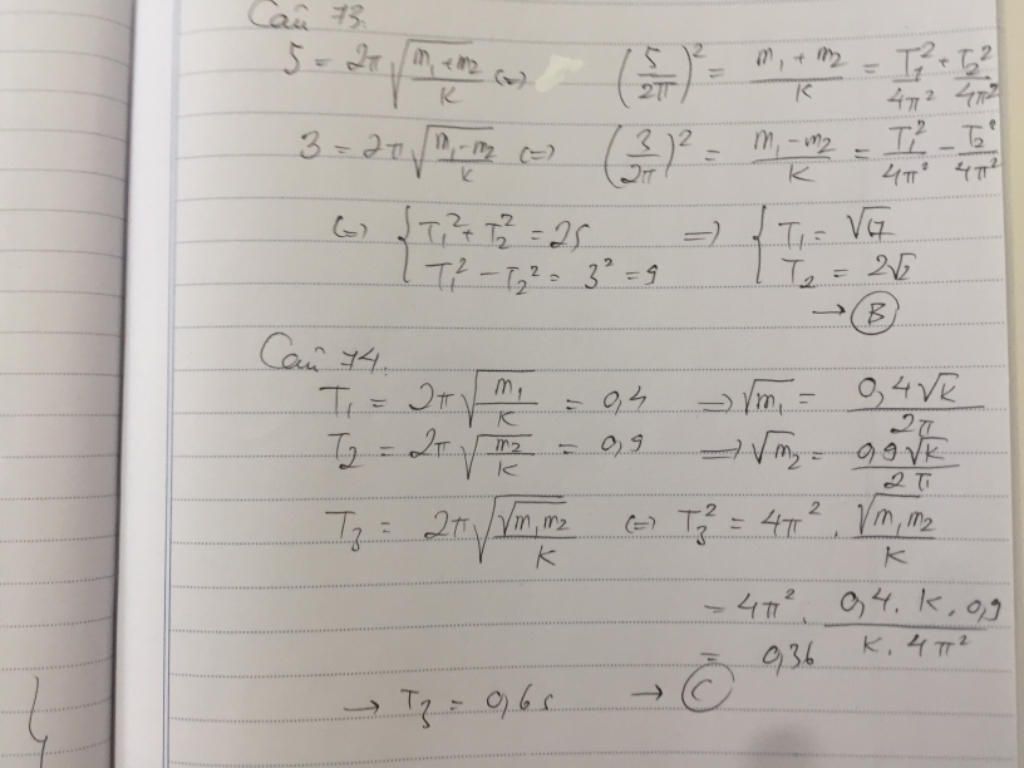 Câu 73.
5 = 2π√((m₁+m₂)/K) (=) (5/2π)² = (m₁+m₂)/K = T₁²/4π² + T₂²/4π²
3 = 2π√((m₁-m₂)/K) (=) (3/2π)² = (m₁-m₂)/K = T₁²/4π² - T₂²/4π²
(=) { T₁² + T₂² = 25 => { T₁ = √17
T₁² - T₂² = 3² = 9 T₂ = 2√2
→ B
Câu 74.
T₁ = 2π√(m₁/K) = 0,4 => √m₁ = 0,4√K/2π
T₂ = 2π√(m₂/K) = 0,9 => √m₂ = 0,9√K/2π
T₃ = 2π√(√(m₁m₂)/K) (=) T₃² = 4π² . √(m₁m₂)/K
= 4π² . (0,4 . K . 0,9)/(K . 4π²)
= 0,36
→ T₃ = 0,6s → C